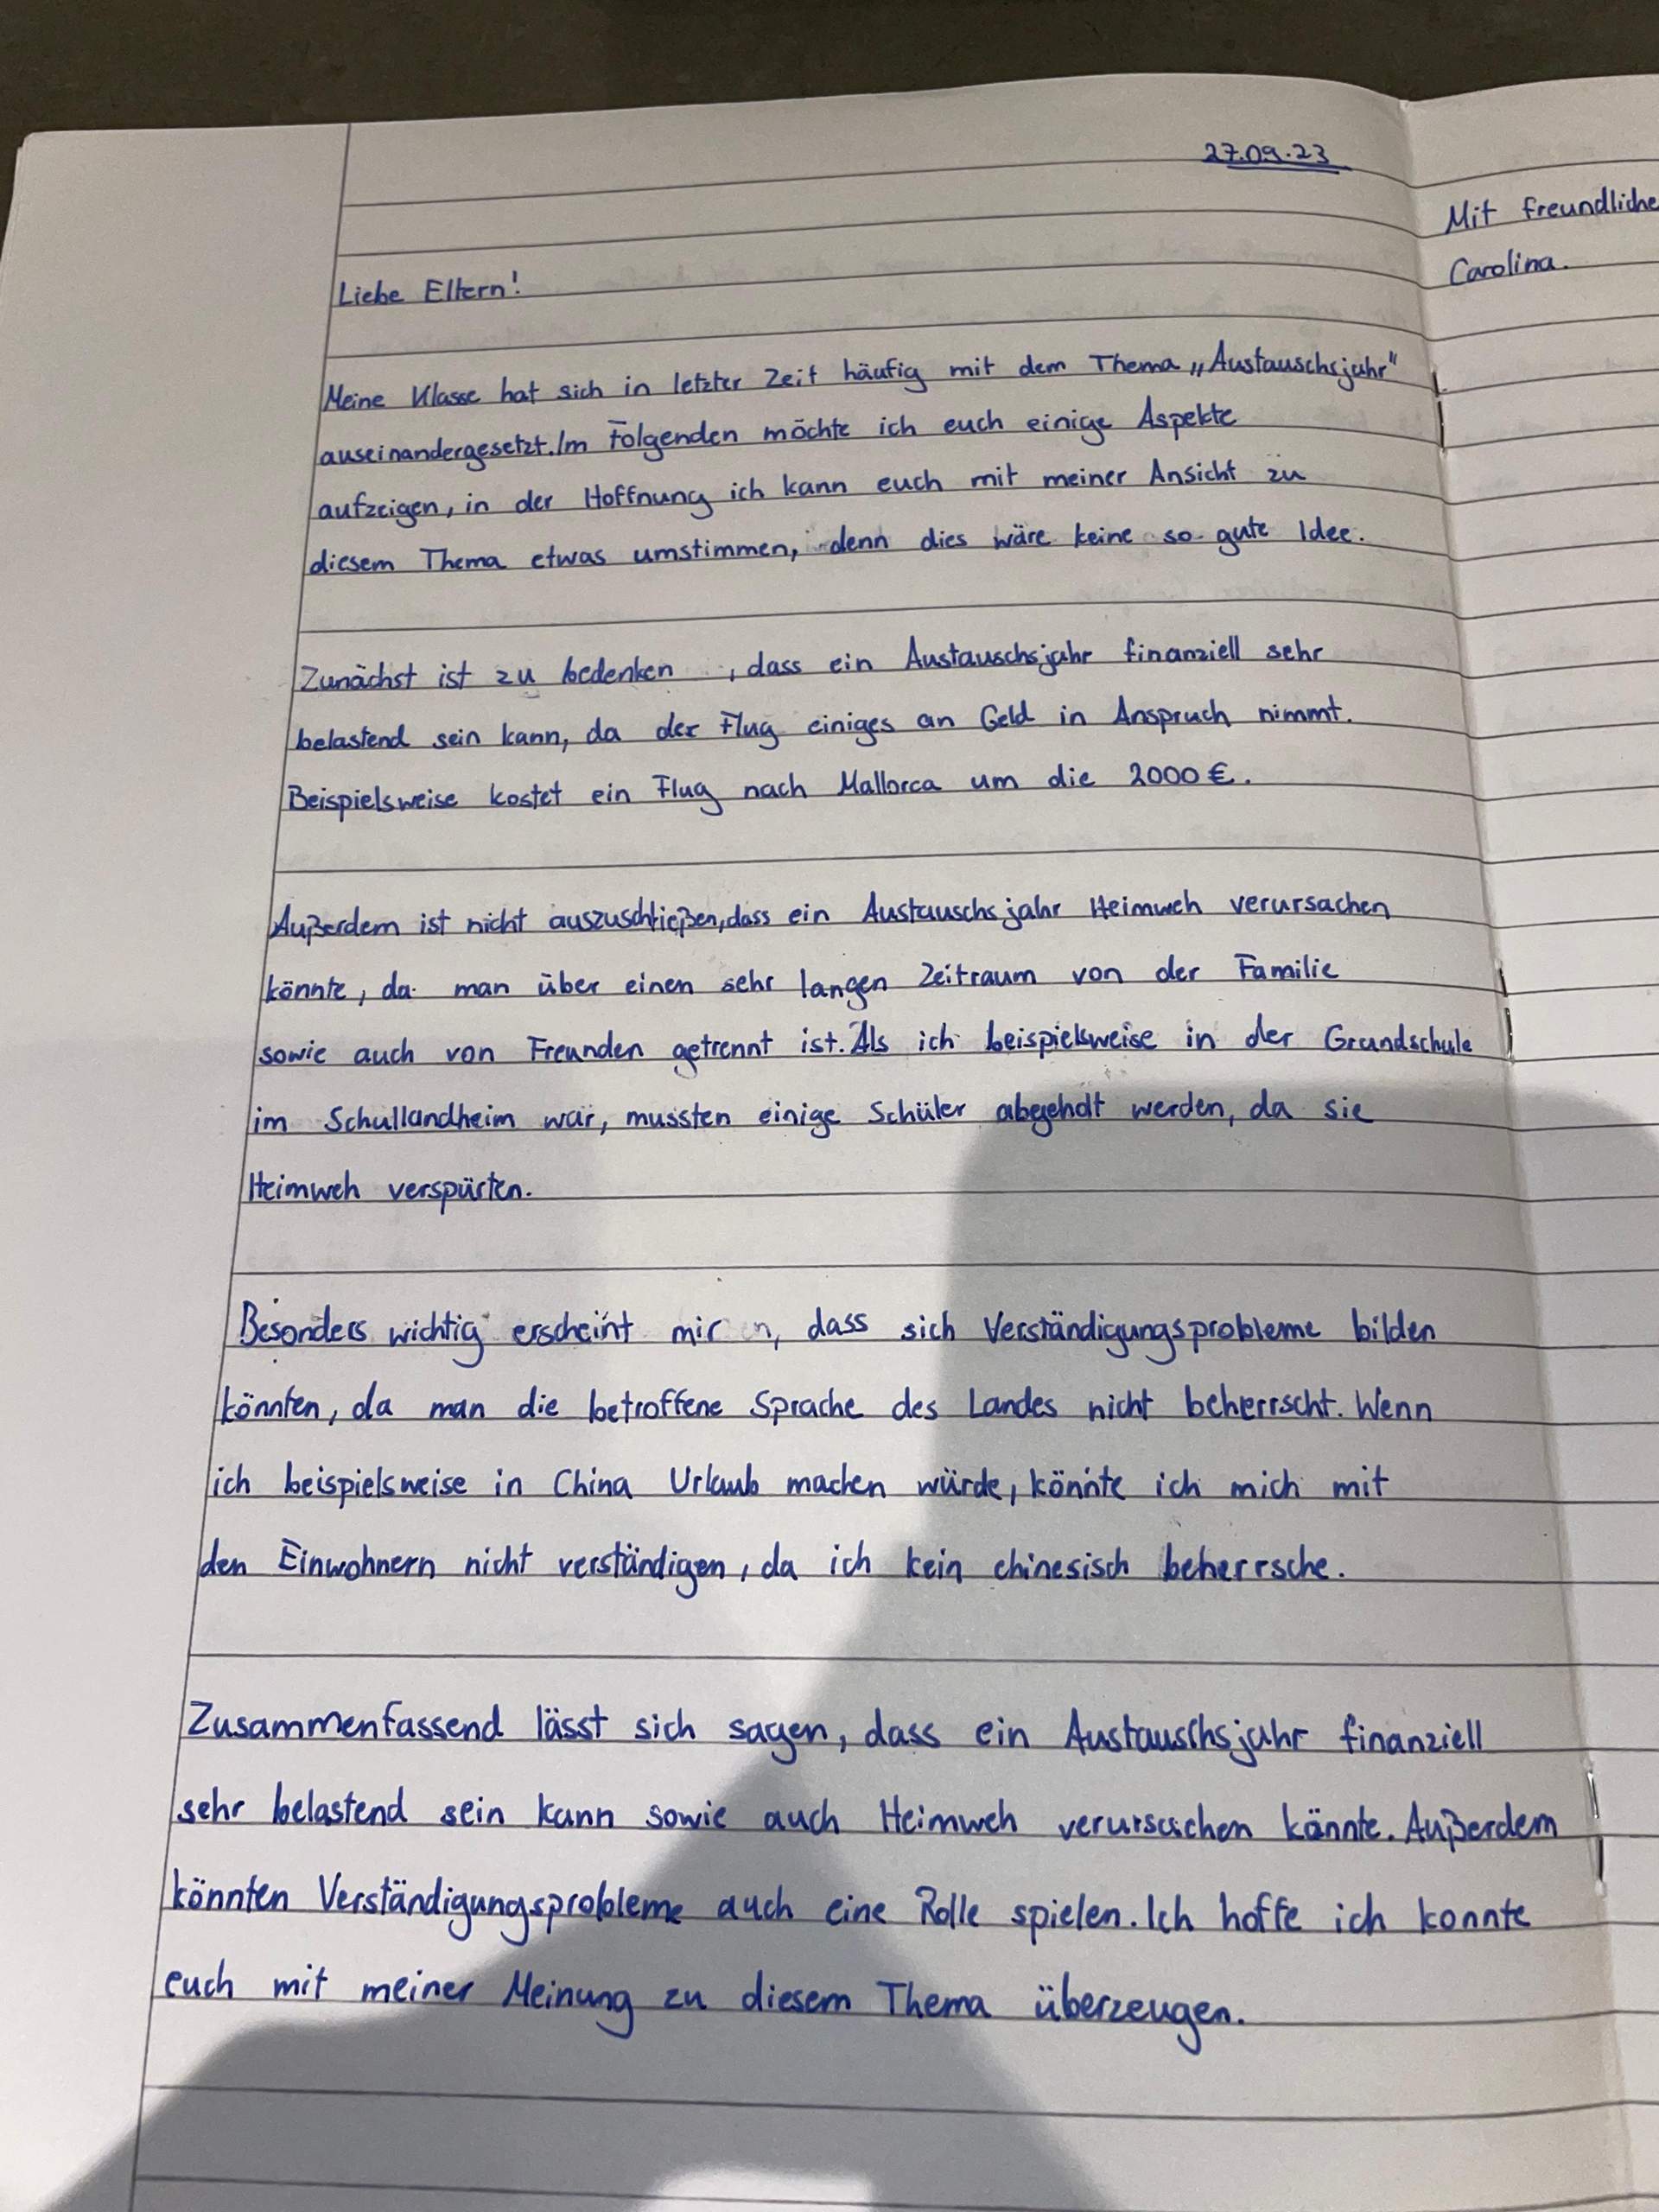 27.09.23
Liebe Eltern!
Meine Klasse hat sich in letzter Zeit häufig mit dem Thema „Austauschsjahr"
auseinandergesetzt. Im Folgenden möchte ich euch einige Aspekte
aufzeigen, in der Hoffnung ich kann euch mit meiner Ansicht zu
diesem Thema etwas umstimmen, denn dies wäre keine so gute Idee.
Zunächst ist zu bedenken , dass ein Austauschsjahr finanziell sehr
belastend sein kann, da der Flug einiges an Geld in Anspruch nimmt.
Beispielsweise kostet ein Flug nach Mallorca um die 2000 €.
Außerdem ist nicht auszuschließen, dass ein Austauschsjahr Heimweh verursachen
könnte, da man über einen sehr langen Zeitraum von der Familie
sowie auch von Freunden getrennt ist. Als ich beispielsweise in der Grundschule
im Schullandheim war, mussten einige Schüler abgeholt werden, da sie
Heimweh verspürten.
Besonders wichtig erscheint mir , dass sich Verständigungsprobleme bilden
könnten, da man die betroffene Sprache des Landes nicht beherrscht. Wenn
ich beispielsweise in China Urlaub machen würde, könnte ich mich mit
den Einwohnern nicht verständigen, da ich kein chinesisch beherrsche.
Zusammenfassend lässt sich sagen, dass ein Austauschsjahr finanziell
sehr belastend sein kann sowie auch Heimweh verursachen könnte. Außerdem
könnten Verständigungsprobleme auch eine Rolle spielen. Ich hoffe ich konnte
euch mit meiner Meinung zu diesem Thema überzeugen.
Mit freundliche
Carolina.